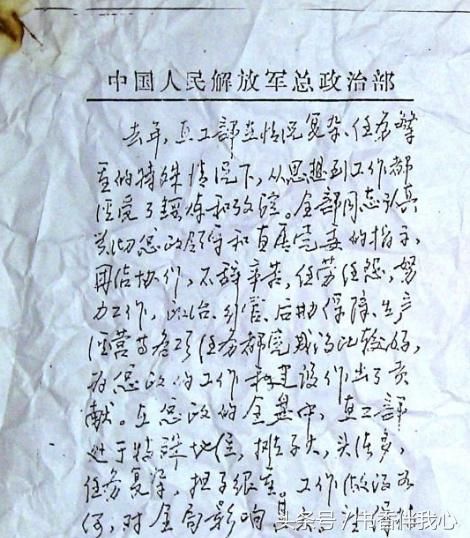 中国人民解放军总政治部
去年，直工部在情况复杂、任务繁
重的特殊情况下，从思想到工作都
经受了锻炼和考验。全部同志认真
贯彻总政领导和直属党委的指示，
团结协作，不辞辛苦，任劳任怨，努
力工作，政治、行管、后勤保障、生产
经营等各项任务都完成得比较好，
为总政的工作和建设作出了贡
献。在总政的全盘中，直工部
处于特殊地位，摊子大，头绪多，
任务复杂，担子很重。工作做得如
何，对全局影响
头条号/书香伴我心